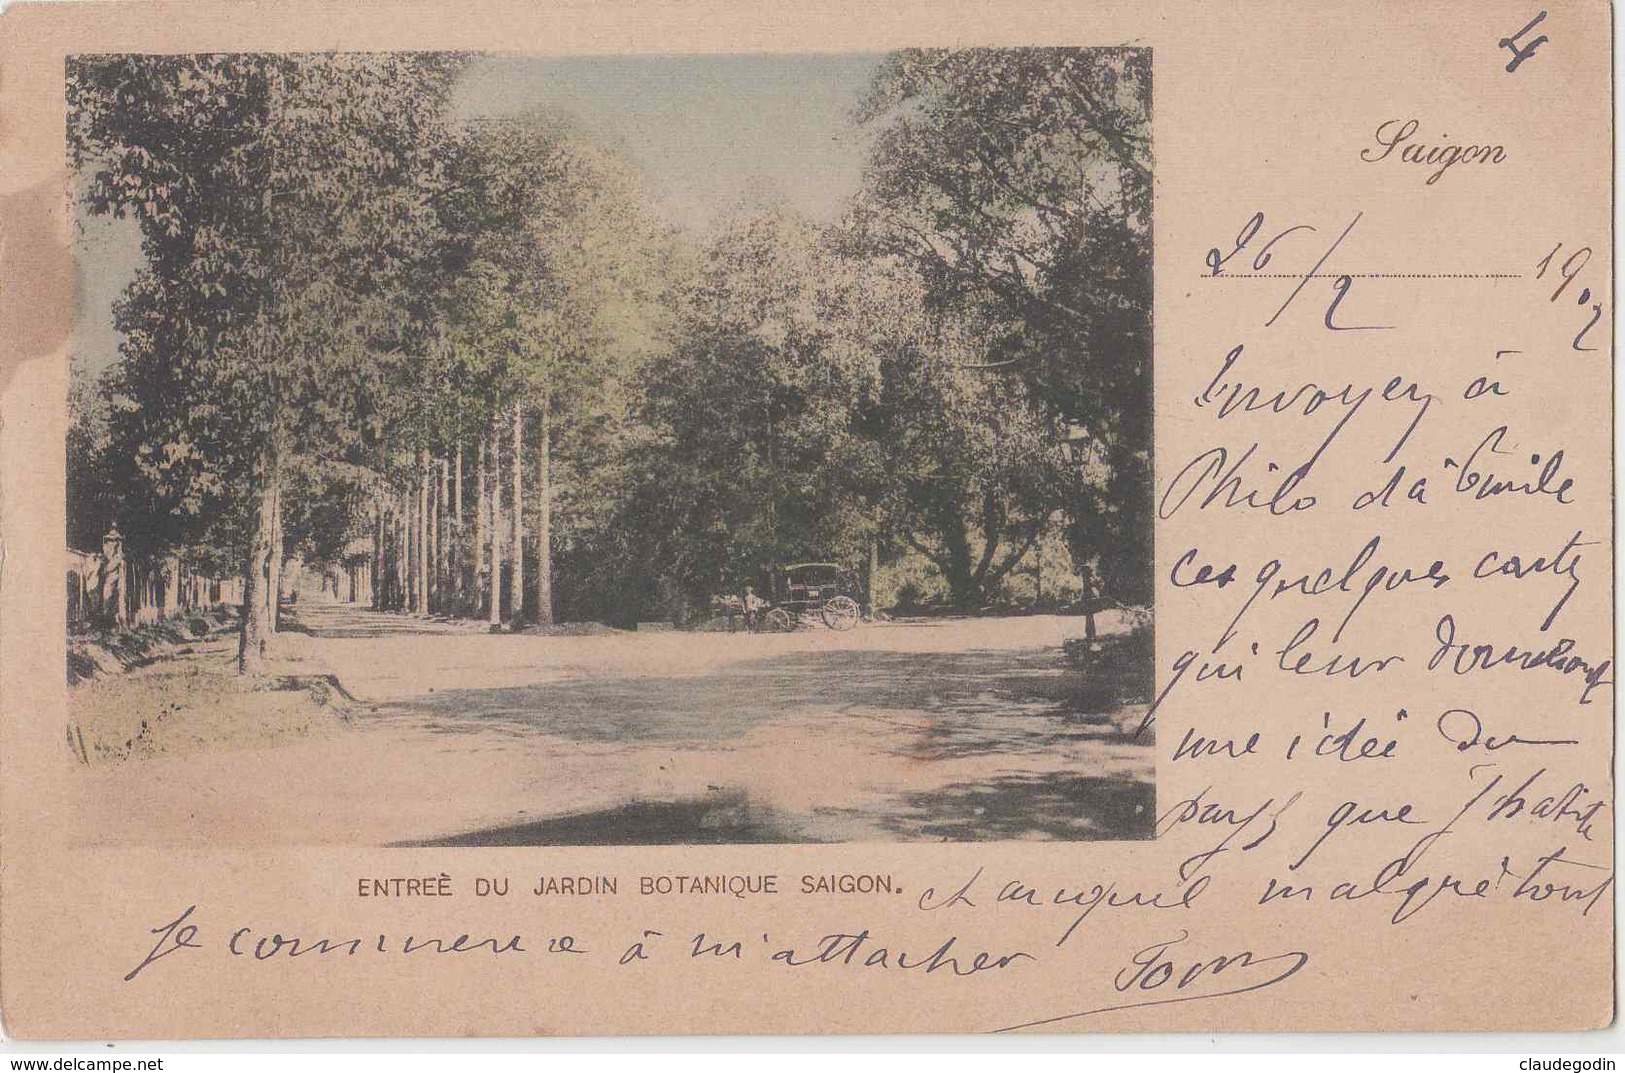 4
Saigon
26/2 1902
Envoyez à
Philo et à Emile
ces quelques cartes
qui leur donneront
une idée du
pays que j'habite
et auquel malgré tout
je commence à m'attacher
ENTREÈ DU JARDIN BOTANIQUE SAIGON.
www.delcampe.net
claudegodin